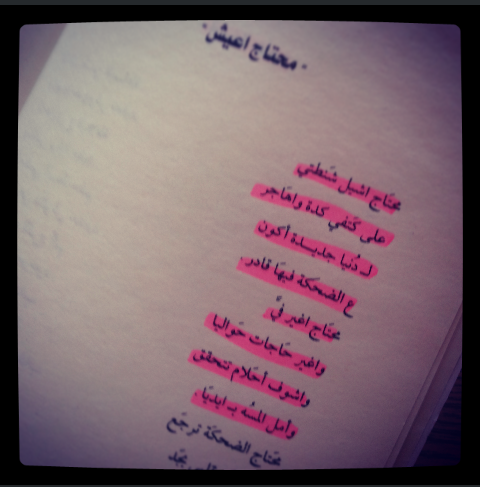 · محتاج اعيش ·
محتاج اشيل شنطتي
على كتفي كدة واهاجر
لـ دُنيا جديدة أكون
ع الضحكة فيها قادر
محتاج اغير فيّ
واغير حَاجات حَواليا
واشوف أحلام تتحقق
وأمل المسُه بـ ايديا.
محتاج الضحكة ترجَع
بجَد